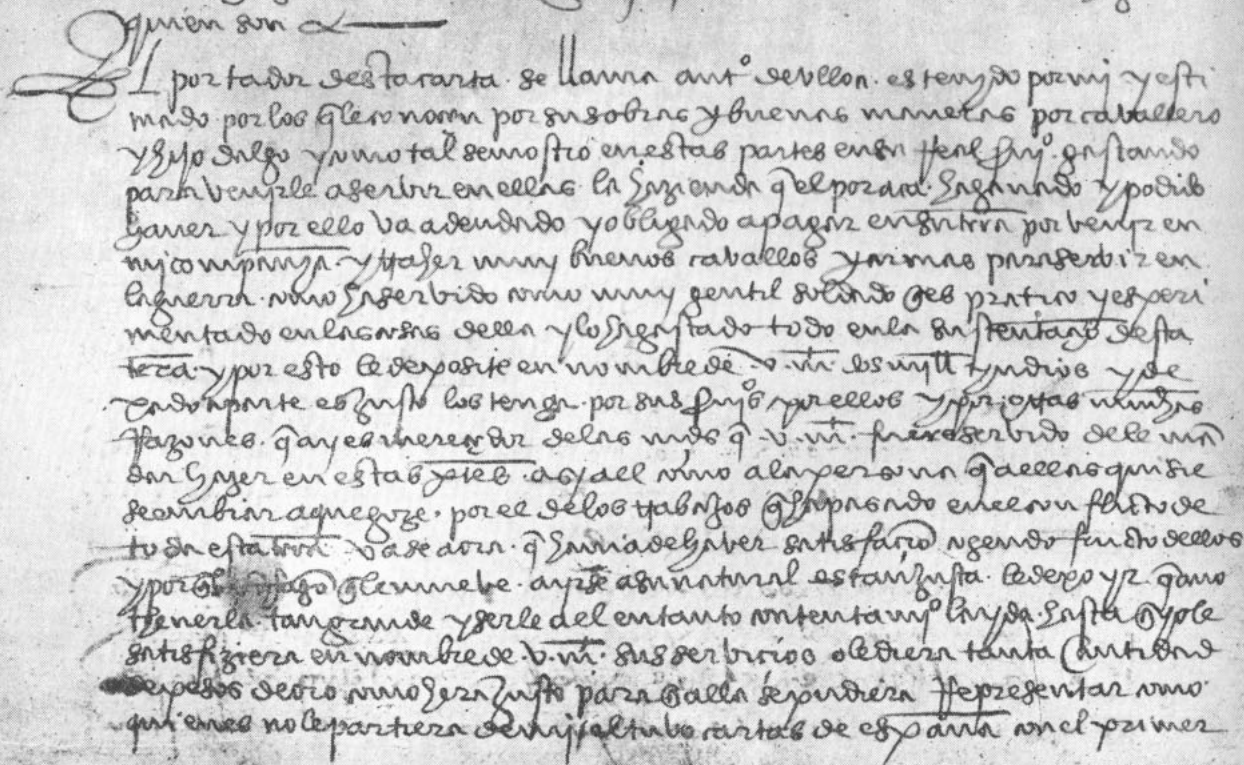 quien son
El portador desta carta se llama antº de ulloa es tenydo por mi y esti
mado por los q̃ le conocen por sus obras y buenas maneras por cavallero
y hijo dalgo y como tal se mostro en estas partes en su rreal servyº gastando
para venyrle a servir en ellas la hazienda q̃ el por aca ha ganado y podido
haver y por ello va adeudado y obligado a pagar en su tierra por venyr en
mi companya y traher muy buenos cavallos y armas para servir en
la guerra como ha servido como muy gentil soldado q̃ es pratico y esperi
mentado en las cosas della y lo ha gastado todo en la sustentaçõ desta
tr̃ra y por esto le deposite en nombre de v. m. dos mill yndios y de
xado aparte es justo los tenga por sus servyºs por ellos y por otras muchas
rrazones q̃ ay es mereçedor de las mds q̃ v. m. fuere servido de le mã
dar hazer en estas ptes asy all como a la persona q̃ a ellas quisie
se embiar a que goze por el de los trabajos q̃ ha pasado en el conflicto de
toda esta trr̃a va de aora q̃ havia de haver satisfaciõ cogendo fructo dellos
y por q̃ le mueve a yrse a su natural es tan justa le dexo yr q̃ a no
thenerla tan grande y serle del en tanto contentamyº la yda hasta q̃ yo le
satisfiziera en nombre de v. m. sus servicios o le diera tanta cantidad
de pesos de oro como hera justo para q̃ alla se pudiera rrepresentar como
quien es no le partiera de mi el tubo cartas de españa con el primer